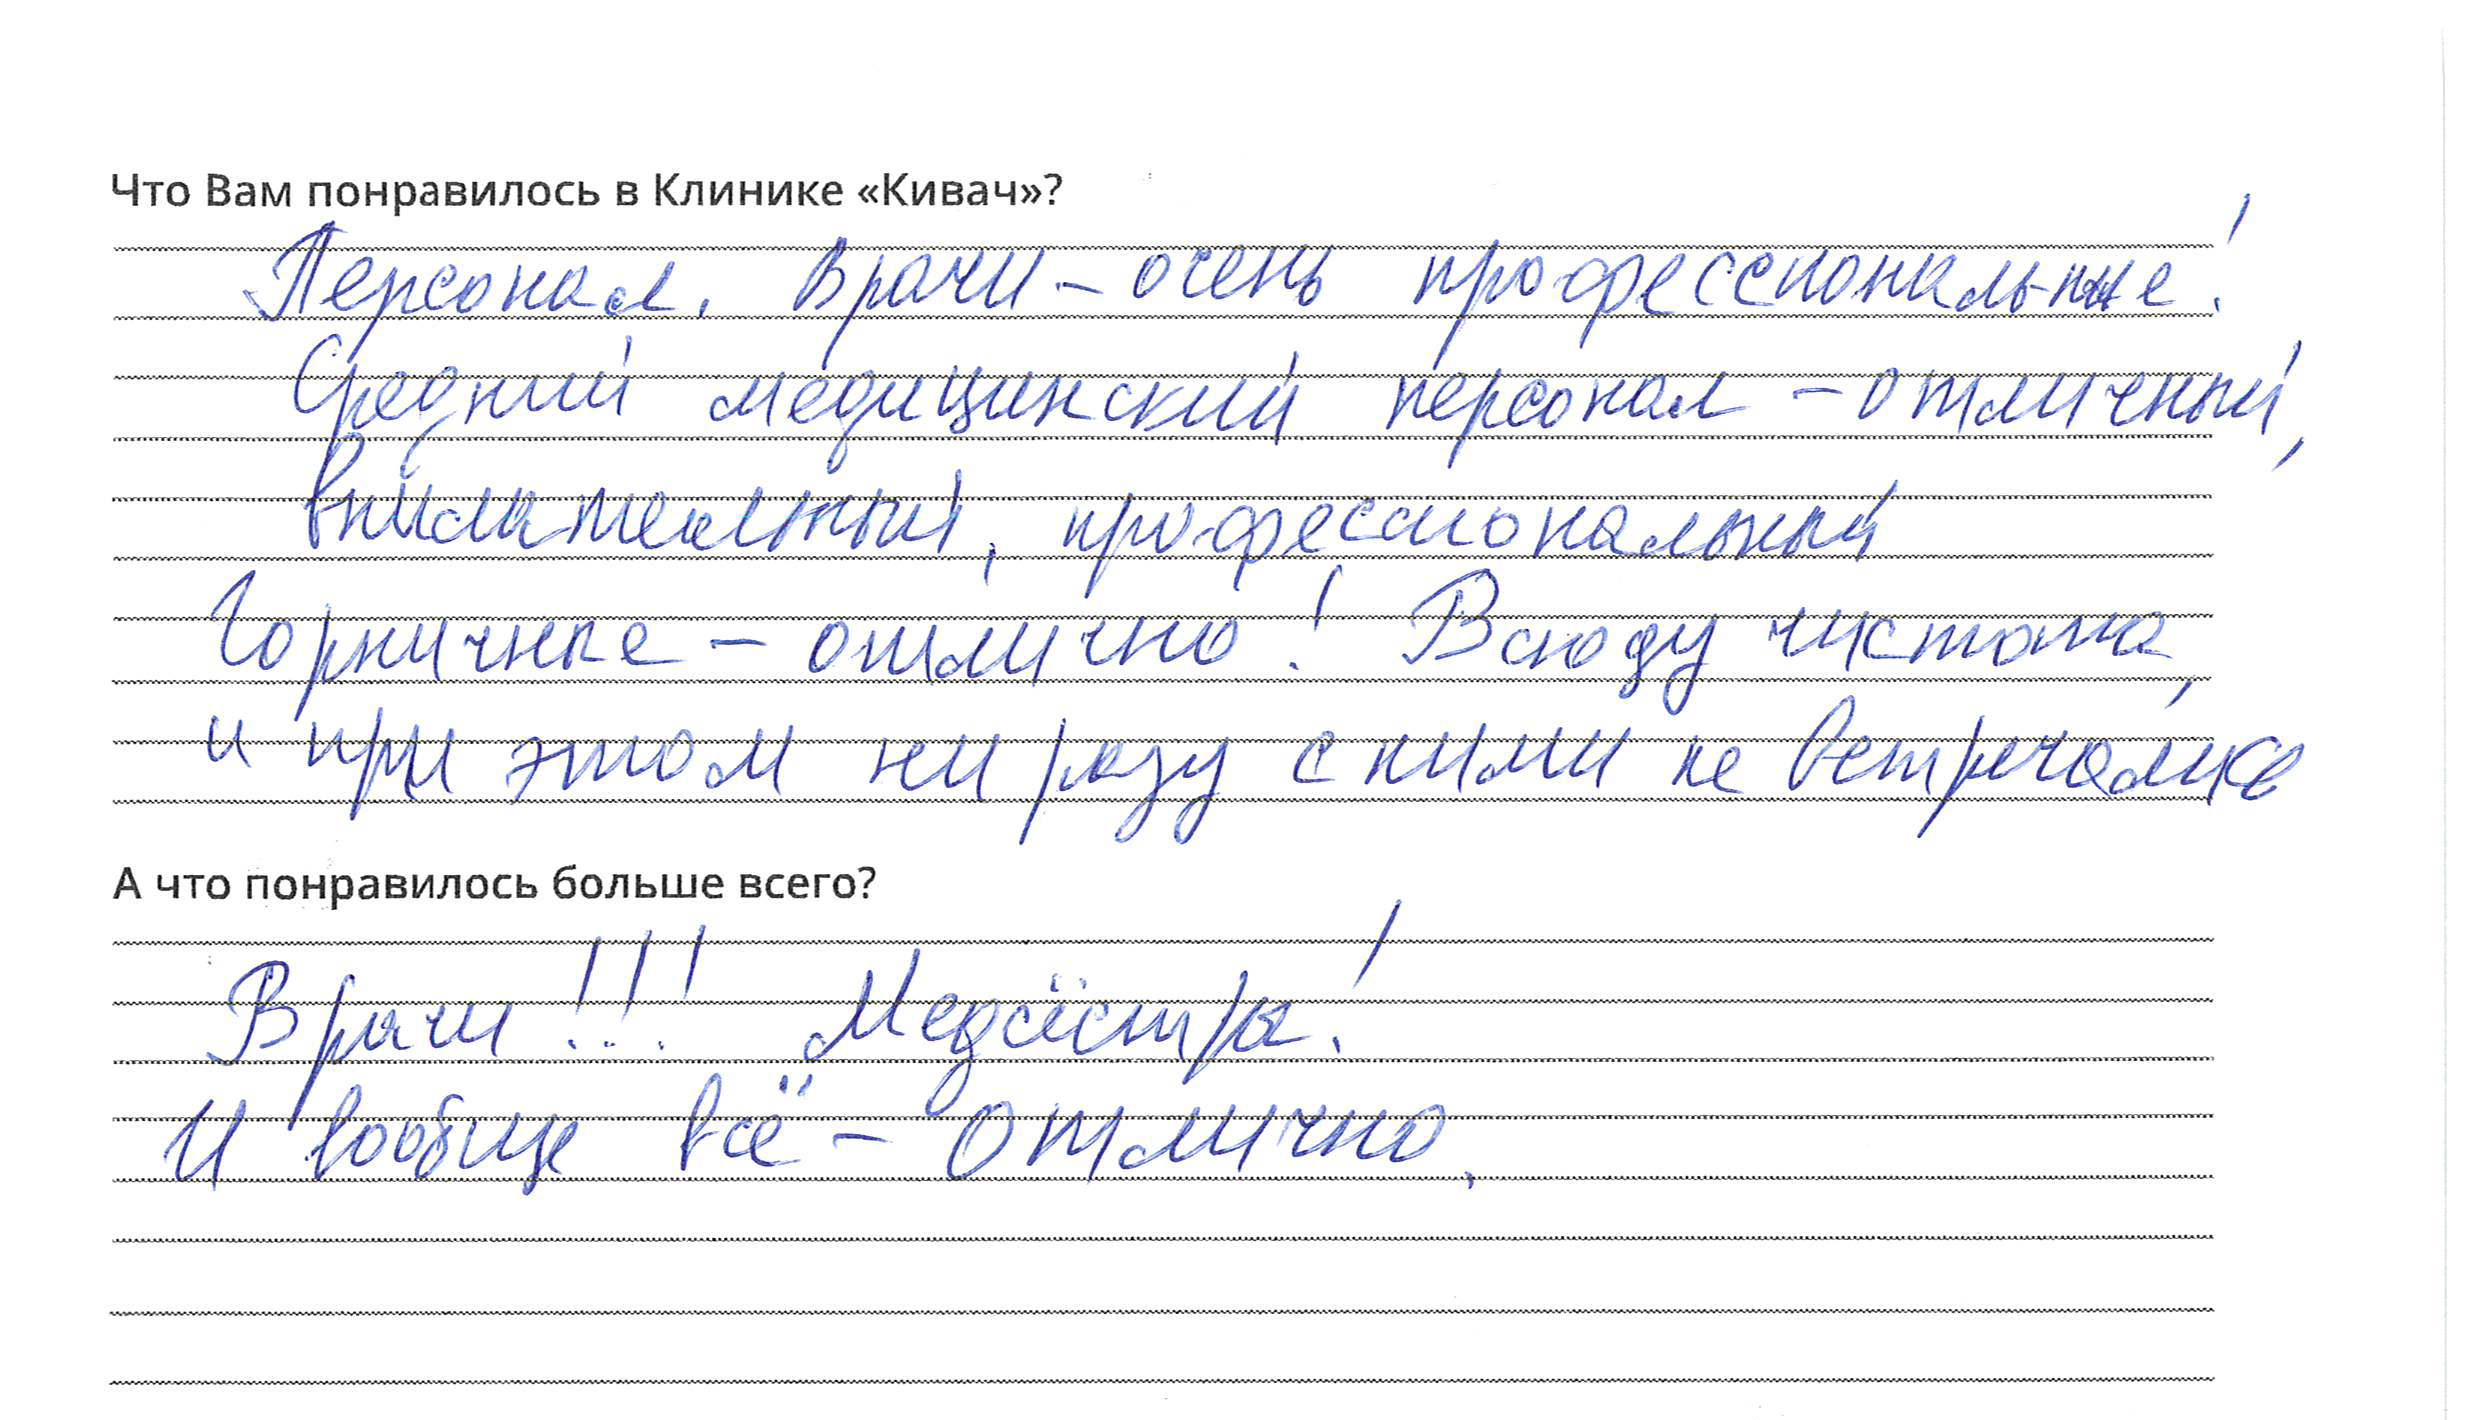 Что Вам понравилось в Клинике «Кивач»?
Персонал. Врачи – очень профессиональные!
Средний медицинский персонал – отличный,
внимательный, профессиональный
Горничные – отлично! Всюду чистота,
и при этом ни разу с ними не встречались
А что понравилось больше всего?
Врачи!!! Медсёстры!
И вообще всё – отлично.